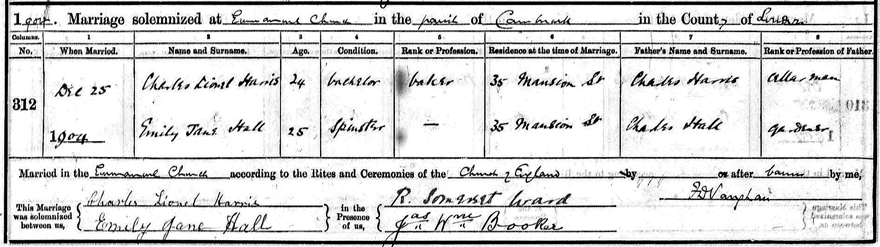 1904. Marriage solemnized at Emmanuel Church in the parish of in the County of London
Columns. 1 2 3 4 5 6 7 8
No. When Married. Name and Surname. Age. Condition. Rank or Profession. Residence at the time of Marriage. Father's Name and Surname. Rank or Profession of Father.
Dec 25 Charles Lionel Harris 24 bachelor baker 35 Mansion St Charles Harris
312
1904 Emily Jane Hall 25 Spinster — 35 Mansion St Charles Hall gardener
Married in the Emmanuel Church according to the Rites and Ceremonies of the Church of England by or after banns by me,
This Marriage was solemnized between us, Charles Lionel Harris in the Presence of us, R. Somerset Ward Vaughan
Emily Jane Hall Jas Wm Booker